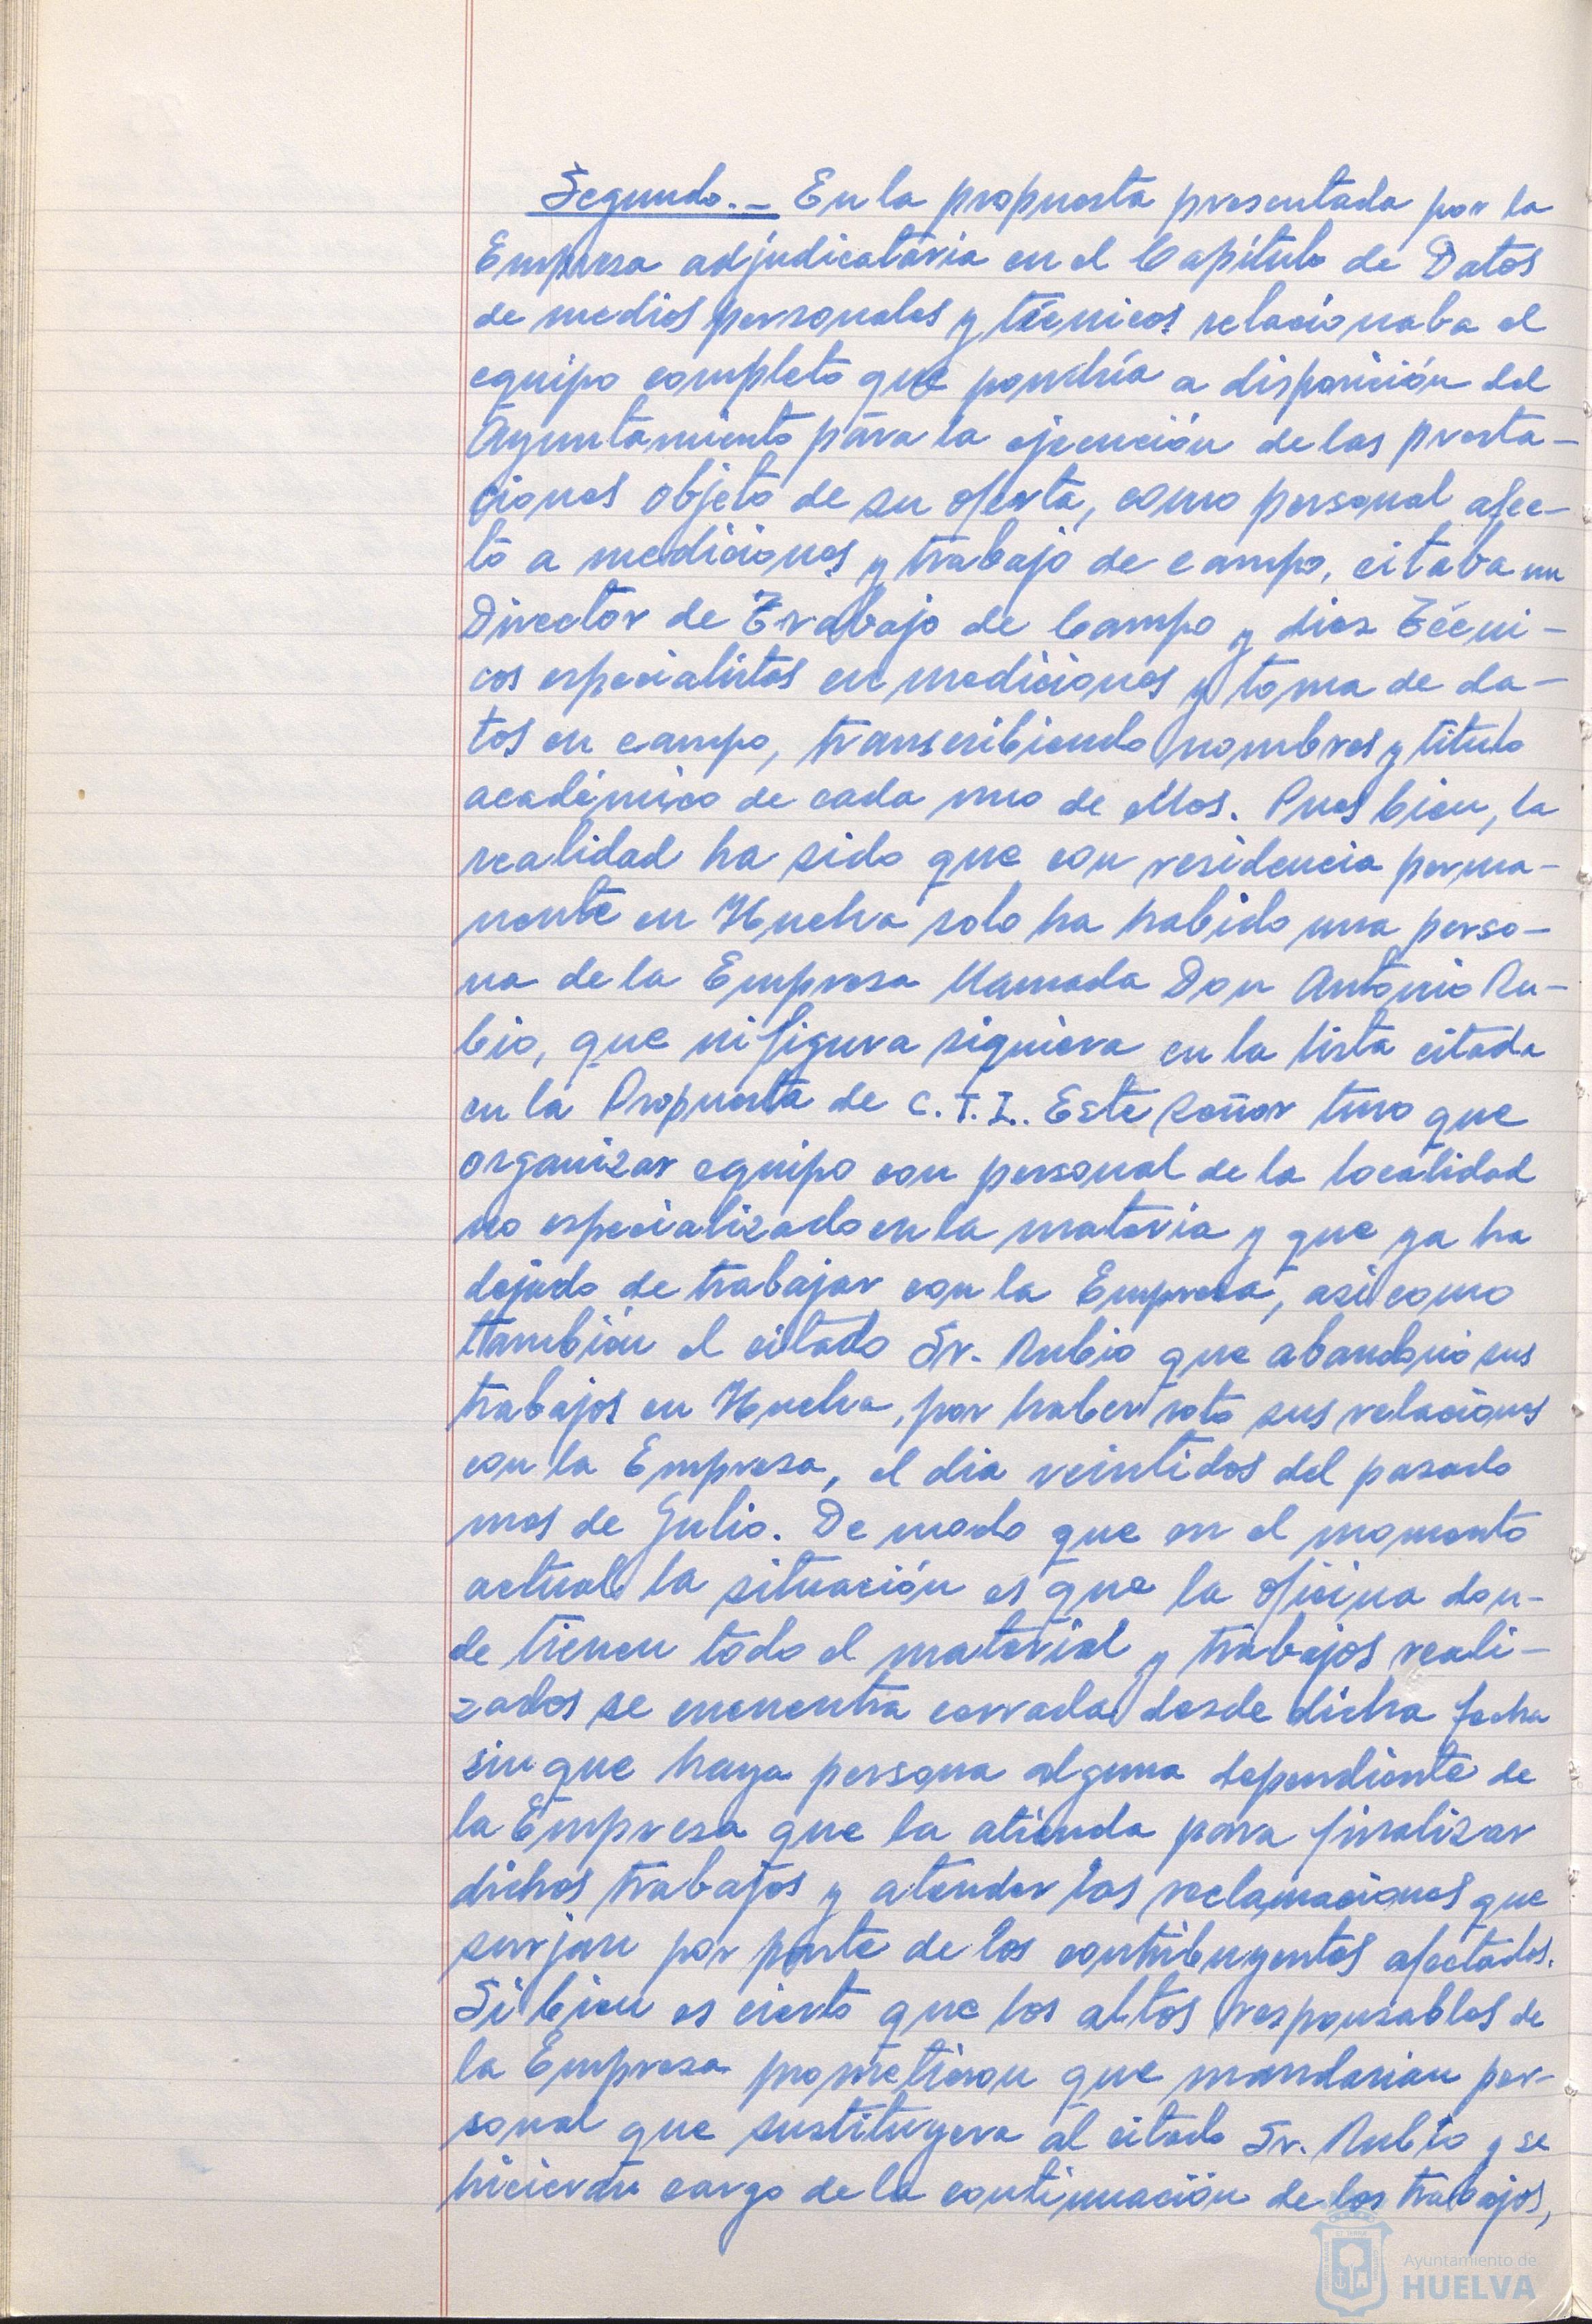 Segundo.- En la propuesta presentada por la
Empresa adjudicataria en el Capítulo de Datos
de medios personales y técnicos relacionaba el
equipo completo que pondría a disposición del
Ayuntamiento para la ejecución de las presta-
ciones objeto de su oferta, como personal afec-
to a mediciones y trabajo de campo, citaba un
Director de Trabajo de Campo y diez Técni-
cos especialistas en mediciones y toma de da-
tos en campo, transcribiendo nombres y título
académico de cada uno de ellos. Pues bien, la
realidad ha sido que con residencia perma-
nente en Huelva solo ha habido una perso-
na de la Empresa llamada Don Antonio Ru-
bio, que ni figura siquiera en la lista citada
en la Propuesta de C.T.I.. Este señor tuvo que
organizar equipo con personal de la localidad
no especializado en la materia y que ya ha
dejado de trabajar con la Empresa, asi como
también el citado Sr. Rubio que abandonó sus
trabajos en Huelva, por haber roto sus relaciones
con la Empresa, el dia veintidos del pasado
mes de Julio. De modo que en el momento
actual la situación es que la oficina don-
de tienen todo el material y trabajos reali-
zados se encuentra cerrada desde dicha fecha
sin que haya persona alguna dependiente de
la Empresa que la atienda para finalizar
dichos trabajos y atender las reclamaciones que
surjan por parte de los contribuyentes afectados.
Si bien es cierto que los altos responsables de
la Empresa prometieron que mandarian per-
sonal que sustituyera al citado Sr. Rubio y se
hicieran cargo de la continuación de los trabajos,
Ayuntamiento de
HUELVA